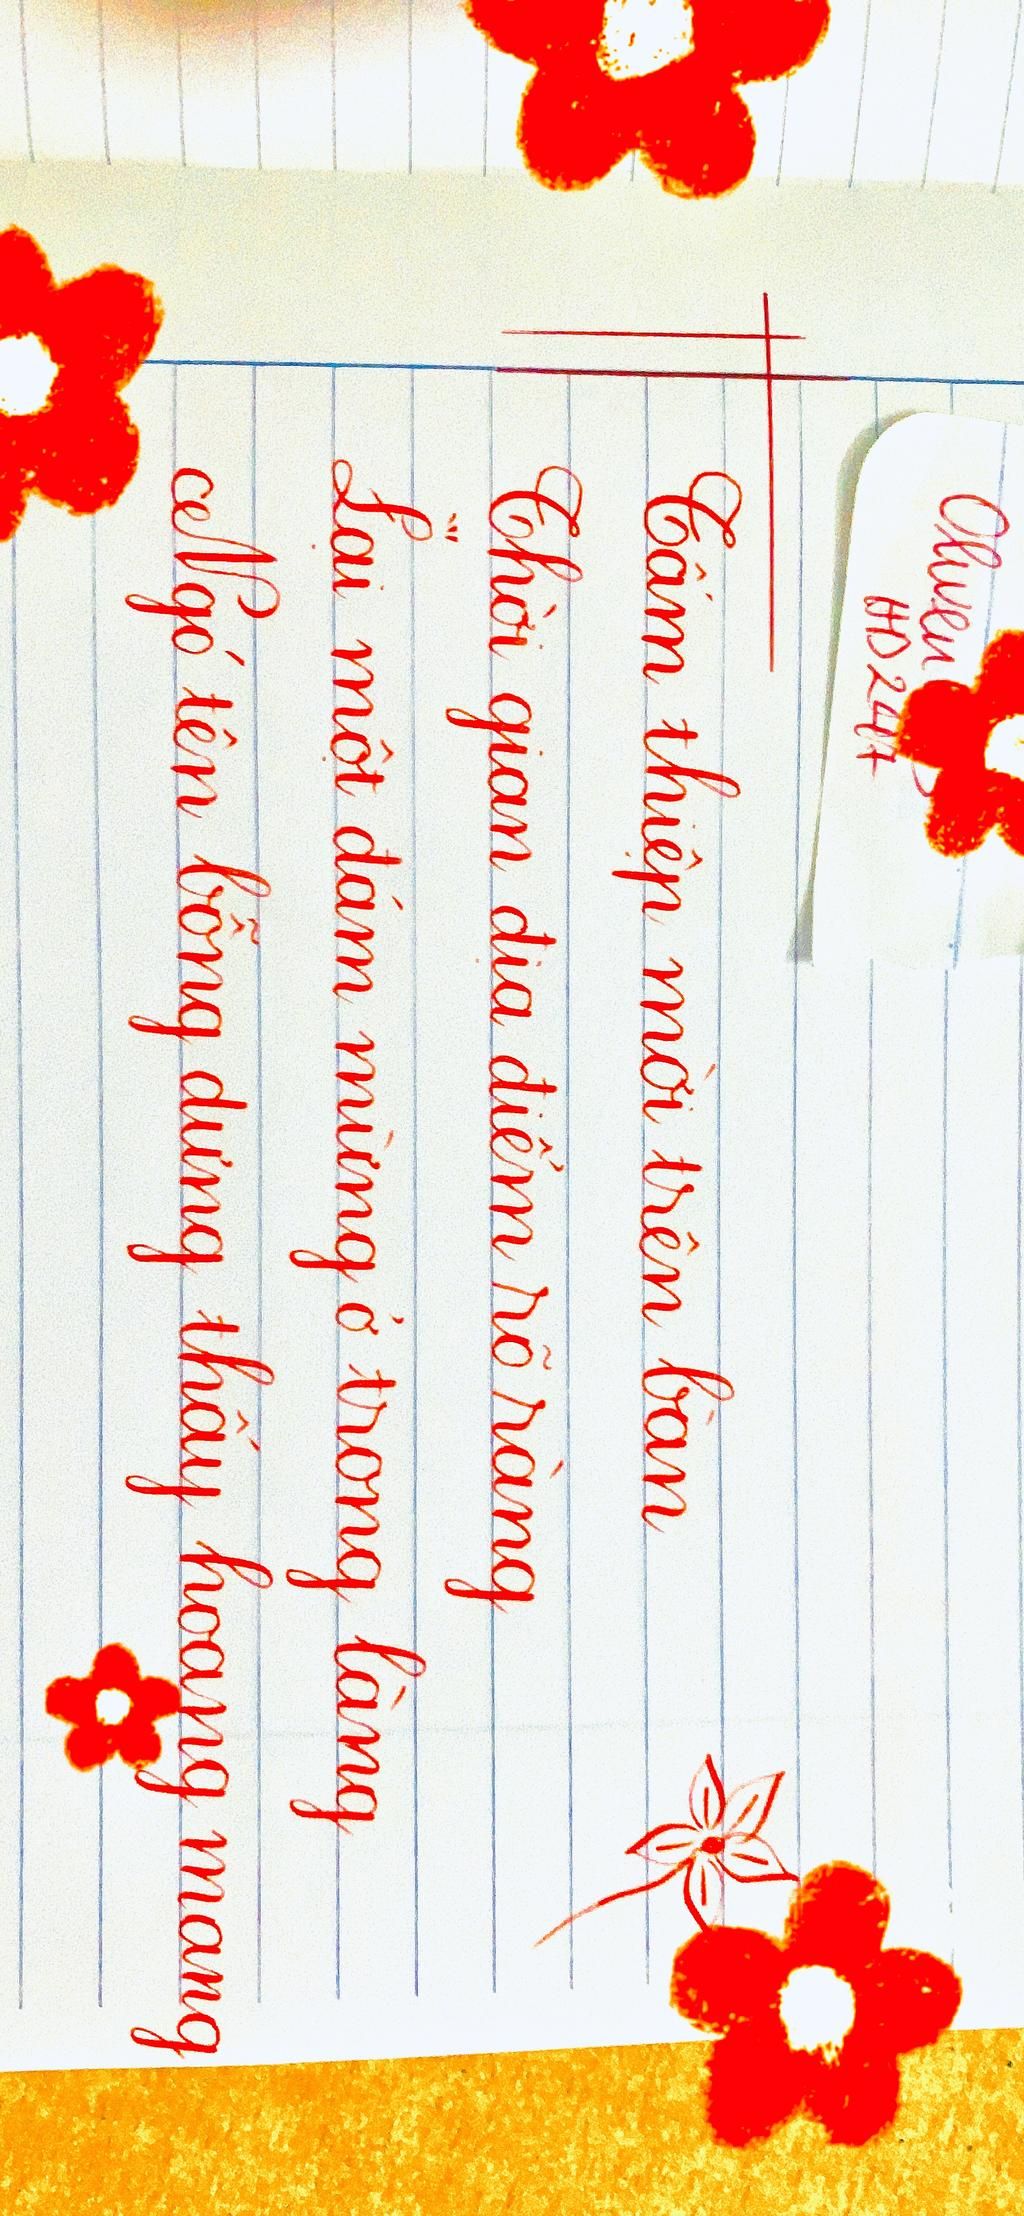 HD 24
Tấm thiệp mời trên bàn
Thời gian địa điểm rõ ràng
Lại một đám mừng ở trong làng
Ngó tên bỗng dưng thấy hoang mang